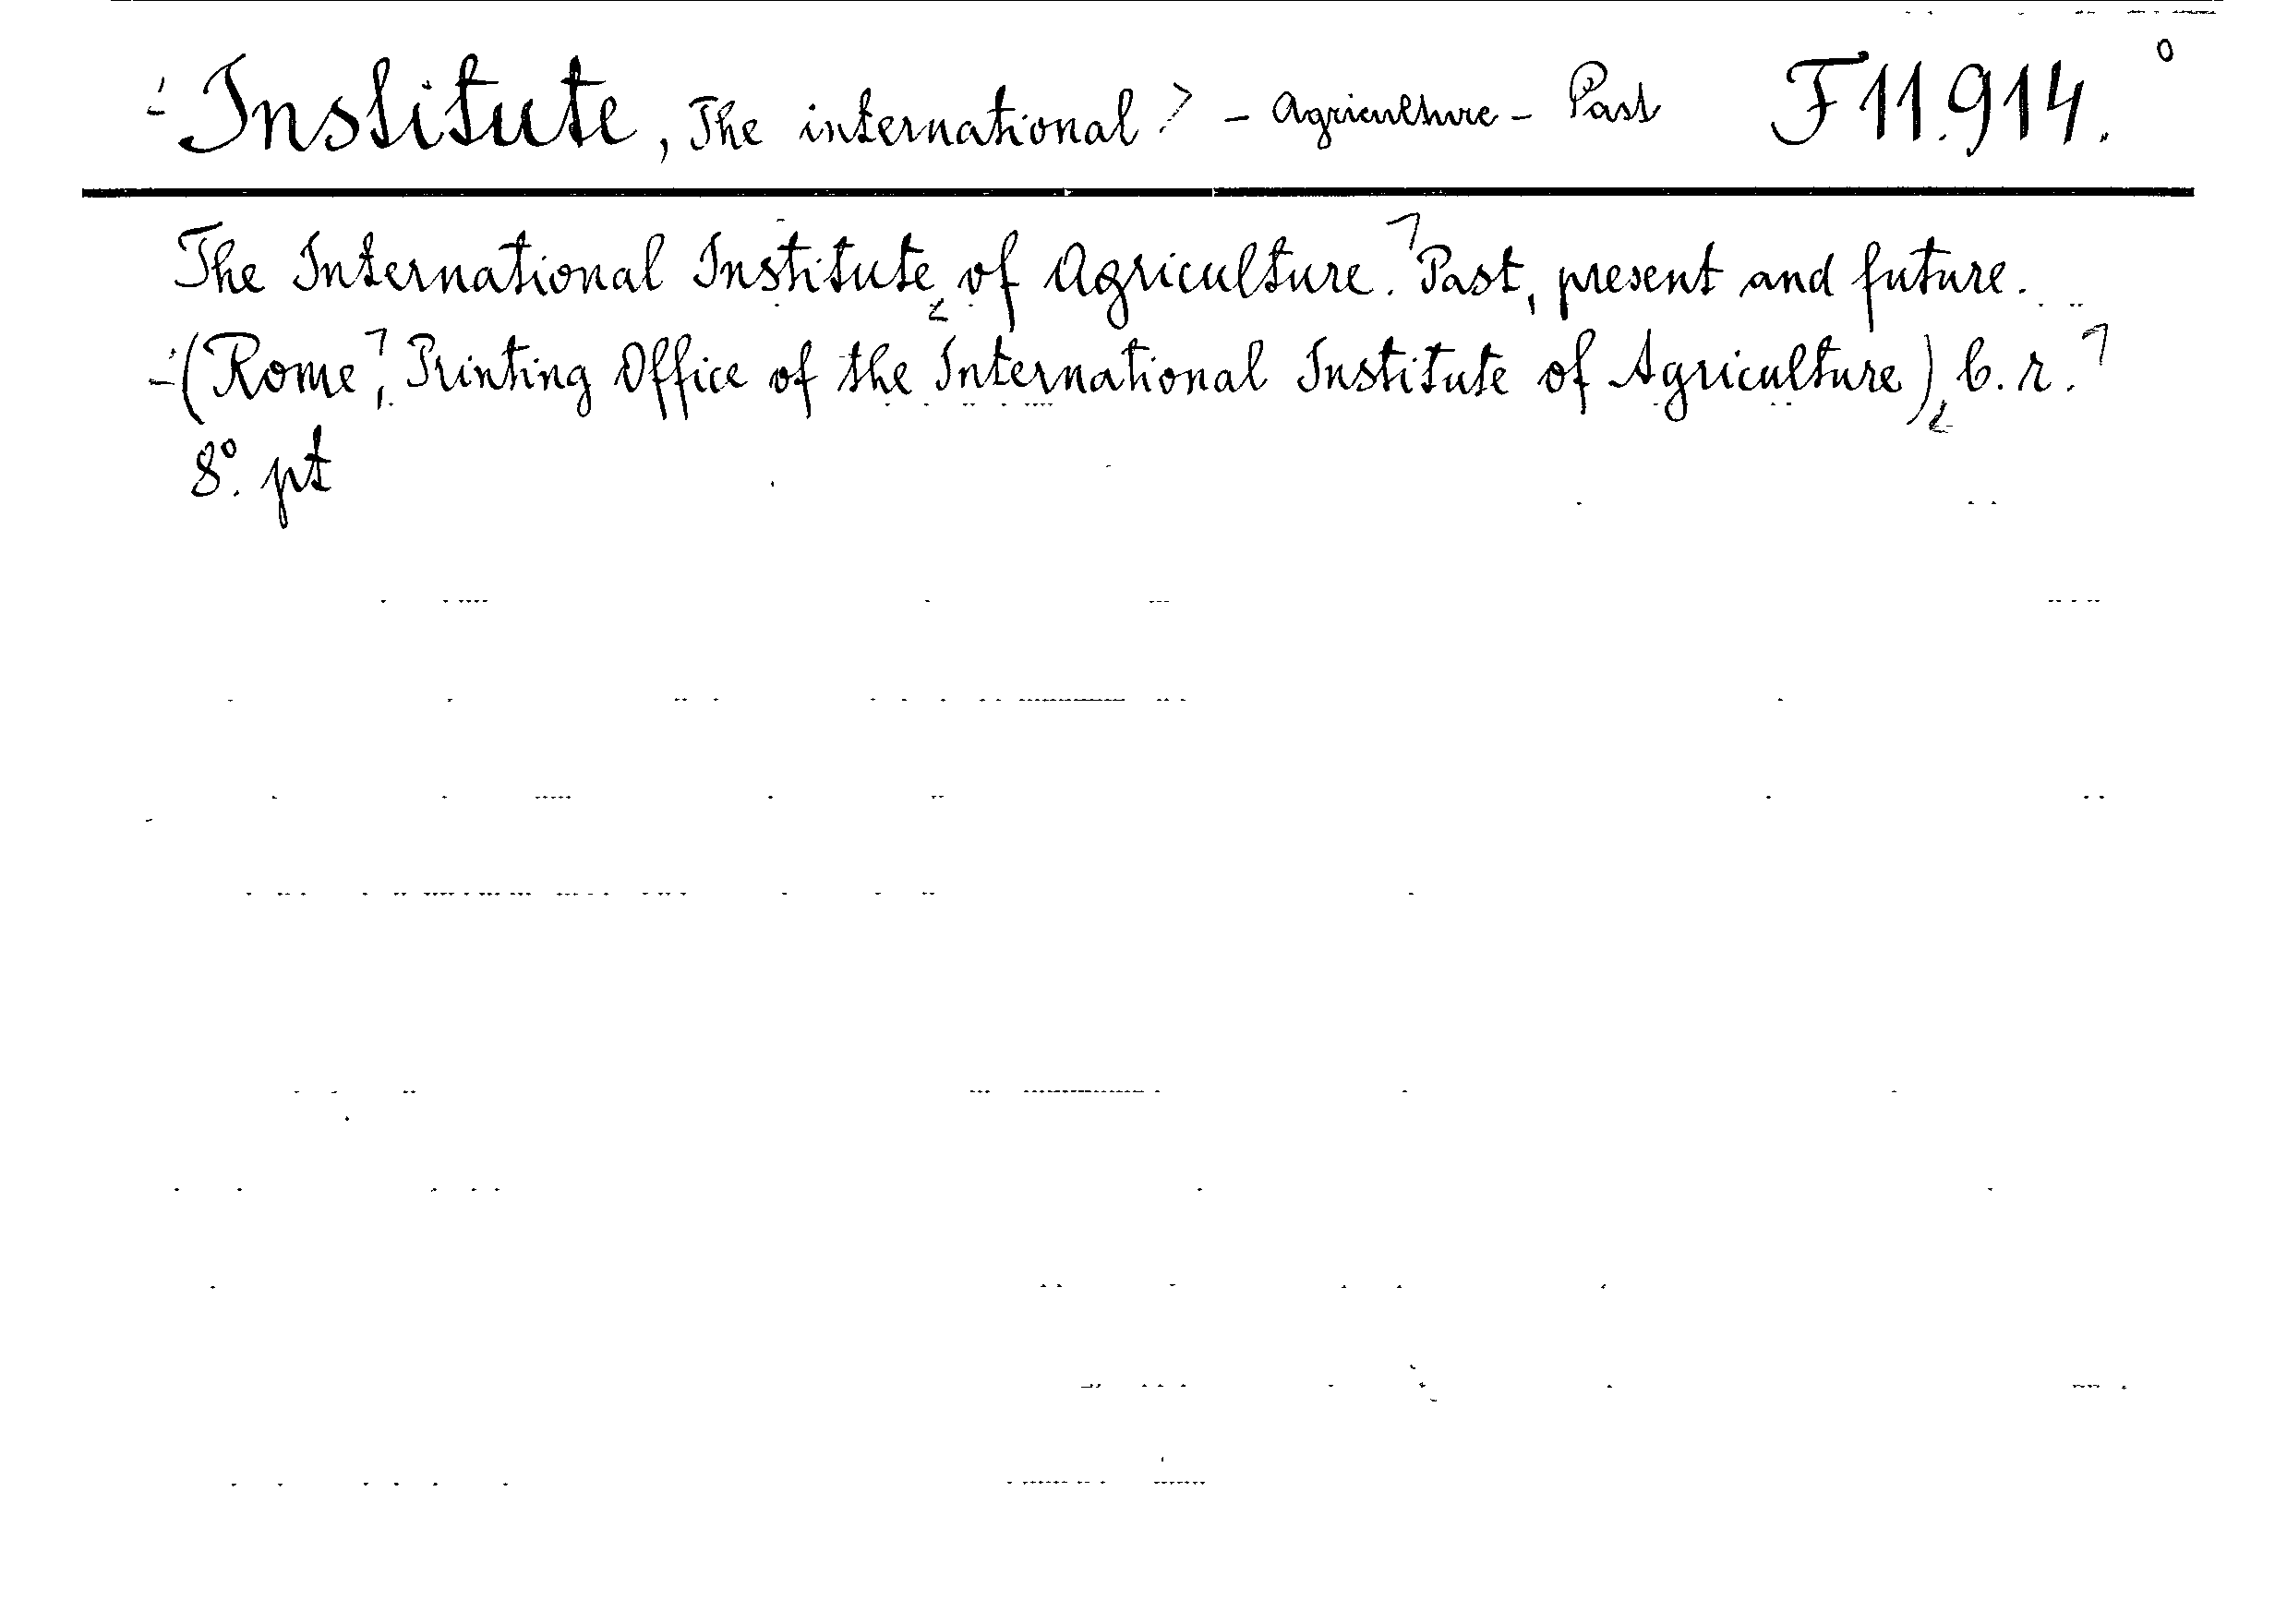 Institute, The international - Agriculture - Past F 11.914.
The International Institute of Agriculture. Past, present and future.
(Rome, Printing Office of the International Institute of Agriculture) b. r.
8°. pt